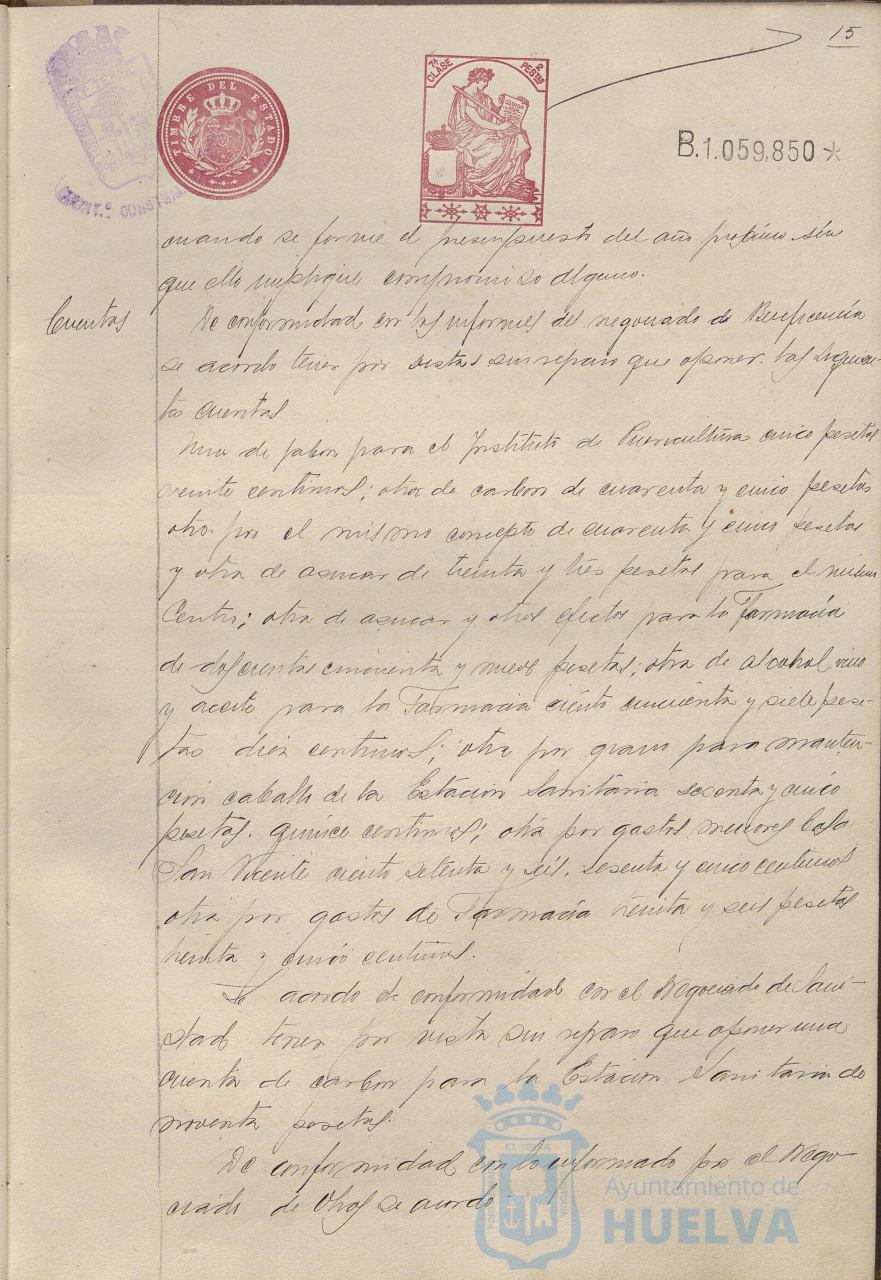 15
TIMBRE DEL ESTADO
7ª CLASE
2 PESTAS
CODIGO
B.1.059,850
AYUNT.º CONSTI
cuando se forme el presupuesto del año próximo sin
que ello implique compromiso alguno.
Cuentas
De conformidad con los informes del negociado de Beneficencia
se acordo tener por vistas sin reparo que oponer. las siguien-
tes cuentas
Una de jabon para el Instituto de Puericultura cinco pesetas
veinte centimos; otra de carbon de cuarenta y cinco pesetas
otra por el mismo concepto de cuarenta y cinco pesetas
y otra de azucar de treinta y tres pesetas para el mismo
Centro; otra de azucar y otros efectos para la Farmacia
de doscientas cincuenta y nueve pesetas; otra de alcohol vino
y aceite para la Farmacia ciento cincuenta y siete pese-
tas diez centimos; otra por grano para manten-
cion caballo de la Estacion Sanitaria sesenta y cinco
pesetas. quince centimos; otra por gastos menores Casa
San Vicente ciento setenta y seis, sesenta y cinco centimos
otra por gastos de Farmacia treinta y seis pesetas
treinta y cinco centimos.
Se acordo de conformidad con el Negociado de Sani-
dad tener por vista sin reparo que oponer una
cuenta de carbon para la Estacion Sanitaria de
noventa pesetas.
De conformidad con lo informado por el Nego-
ciado de Obras se acordo
Ayuntamiento de
HUELVA